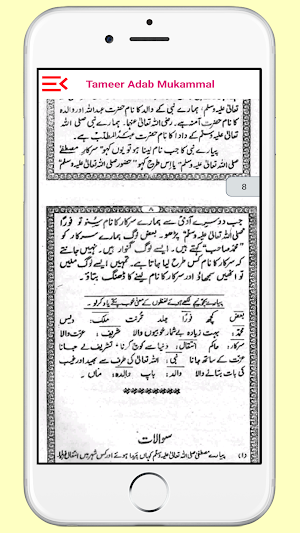 Tameer Adab Mukammal
تعالیٰ علیہ وسلم ہے، ہمارے نبی کے والد کا نام حضرت عبداللہ اور والدہ
کا نام حضرت آمنہ ہے۔ رضی اللہ تعالیٰ عنہما۔ ہمارے نبی صلی اللہ
تعالیٰ علیہ وسلم کے دادا کا نام حضرت عبدالمطلب ہے۔
پیارے نبی کا جب نام لینا ہو تو یوں کہو سرکار مصطفےٰ
صلی اللہ تعالیٰ علیہ وسلم یا اس طرح کہو "حضور صلی اللہ تعالیٰ علیہ وسلم"
8
جب دوسرے آدمی سے ہمارے سرکار کا نام سنو تو فوراً
صلی اللہ تعالیٰ علیہ وسلم پڑھو۔ بعض لوگ ہمارے سرکار کو
"محمد صاحب" کہتے ہیں۔ ایسے لوگ گنوار ہیں۔ نہیں جانتے
کہ سرکار کا نام کس طرح لیا جاتا ہے۔ تمہیں ایسے لوگ ملیں
تو انھیں سمجھاؤ اور سرکار کا نام لینے کا ڈھنگ بتاؤ۔
پیارے بچو نیچے لکھے ہوئے لفظوں کے معنی خوب یاد کر لو۔
بعض کچھ فوراً جلد عزت ملک: دیس
محمد: بہت زیادہ بے شمار خوبیوں والا شریف: عزت والا
سرکار: حاکم انتقال: دنیا سے کوچ کرنا، تشریف لے جانا
عزت کے ساتھ جانا نبی: اللہ تعالیٰ کی طرف سے بھید اور غیب
کی بات بتانے والا والد: باپ والدہ: ماں۔
سوالات
پیارے مصطفےٰ صلی اللہ تعالیٰ علیہ وسلم کہاں پیدا ہوئے اور کس شہر میں انتقال